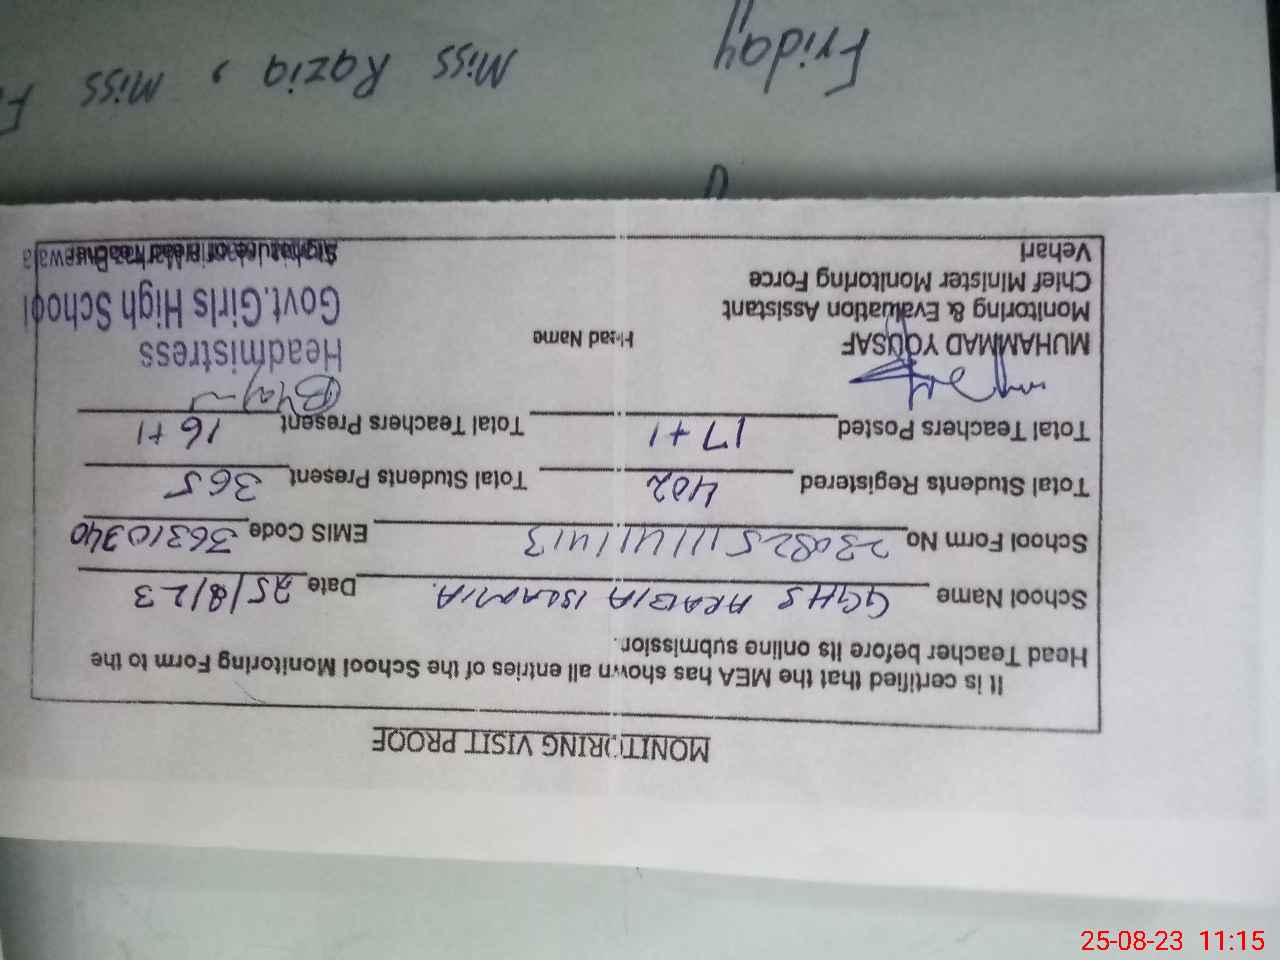 MONITORING VISIT PROOF
It is certified that the MEA has shown all entries of the School Monitoring Form to the
Head Teacher before its online submission.
School Name GGHS ARABIA ISLAMIA. Date 25/8/23
School Form No 230825111141413 EMIS Code 36310340
Total Students Registered 402 Total Students Present 365
Total Teachers Posted 17+1 Total Teachers Present 16+1
MUHAMMAD YOUSAF Head Name Headmistress
Monitoring & Evaluation Assistant Govt.Girls High School
Chief Minister Monitoring Force
Vehari
Friday Miss Razia, Miss
25-08-23 11:15